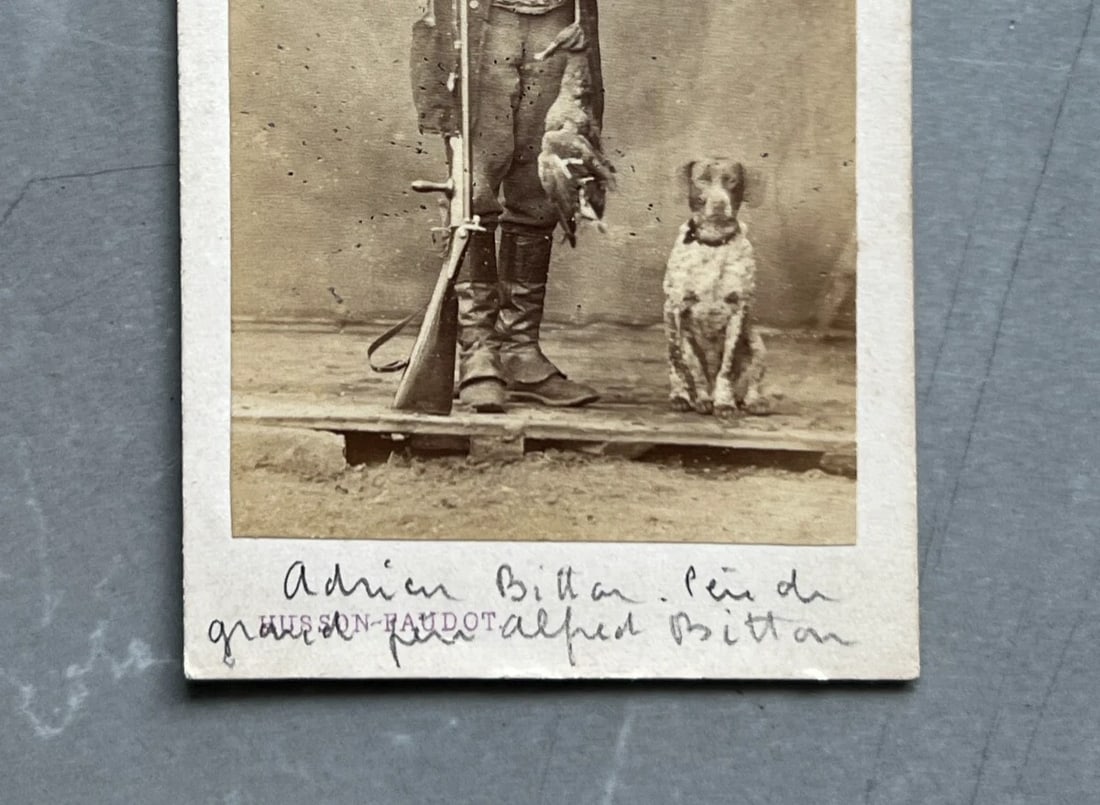 Adrien Bitton. Père de
grand père Alfred Bitton
HUSSON-FAUDOT